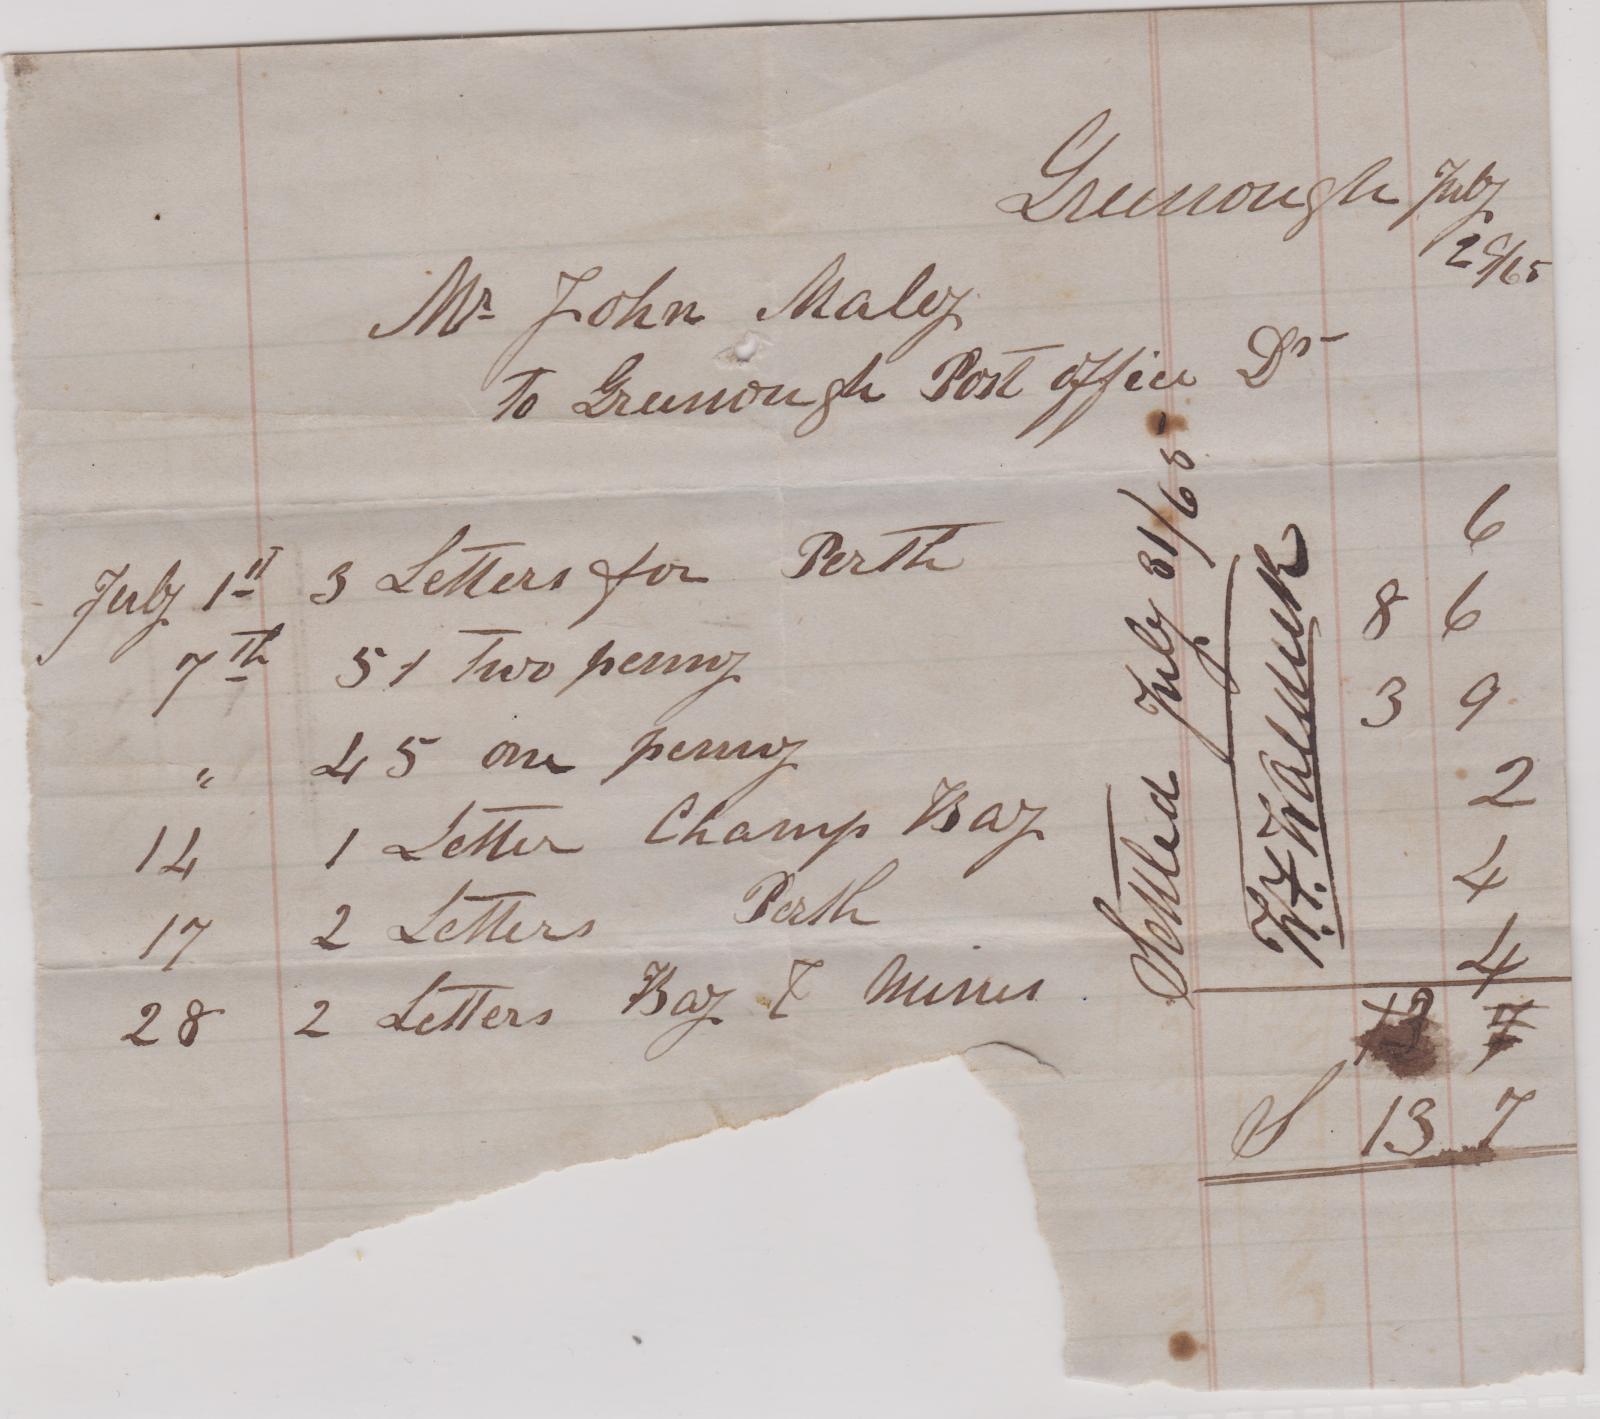 Greenough July
28/65
Mr John Maley
To Greenough Post office Dr
July 1st 3 Letters for Perth 6
7th 51 two penny 8 6
" 45 one penny 3 9
14 1 Letter Champ Bay 2
17 2 Letters Perth 4
28 2 Letters Bay & Mines 4
13 7
S 13 7
Settled July 31/65